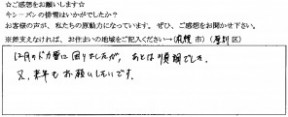 ☆ご感想をお願いします☆
今シーズンの排雪はいかがでしたか?
お客様の声が、私たちの原動力になっています。ぜひ、ご感想をお聞かせ下さい。
※差支えなければ、お住まいの地域をご記入ください→(札幌市)(厚別区)
12月のドカ雪に困りましたが、あとは順調でした。
又、来年もお願いしたいです。